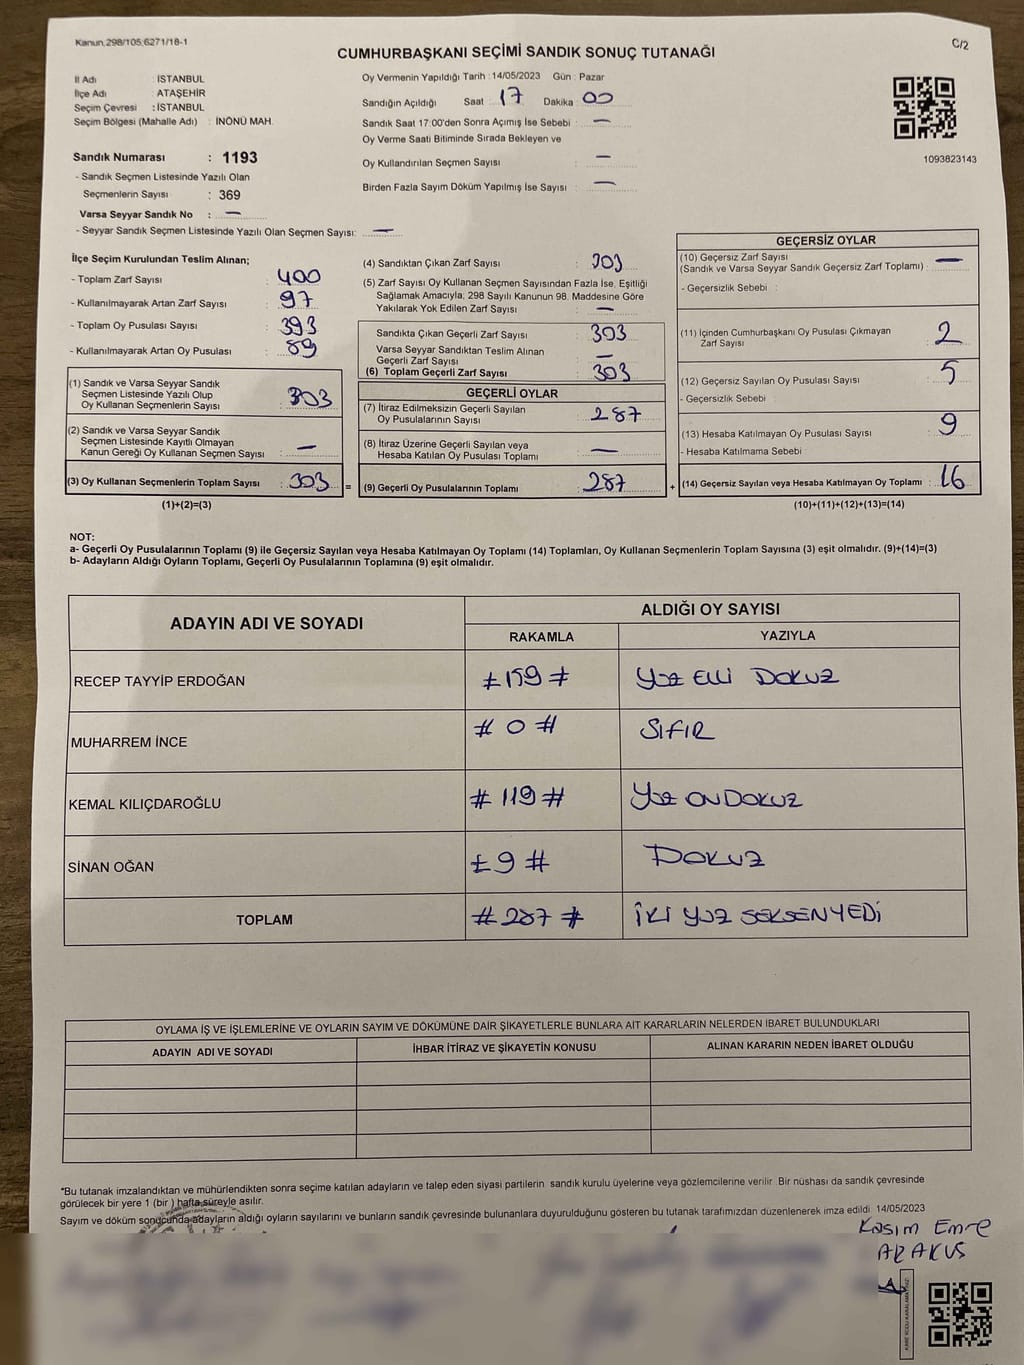 Kanun.298/105,6271/18-1
C/2
CUMHURBAŞKANI SEÇİMİ SANDIK SONUÇ TUTANAĞI
İl Adı : İSTANBUL
İlçe Adı : ATAŞEHİR
Seçim Çevresi : İSTANBUL
Seçim Bölgesi (Mahalle Adı) : İNÖNÜ MAH.
Sandık Numarası : 1193
- Sandık Seçmen Listesinde Yazılı Olan
Seçmenlerin Sayısı : 369
Varsa Seyyar Sandık No : —
- Seyyar Sandık Seçmen Listesinde Yazılı Olan Seçmen Sayısı: —
Oy Vermenin Yapıldığı Tarih : 14/05/2023 Gün : Pazar
Sandığın Açıldığı Saat : 17 Dakika : 00
Sandık Saat 17:00'den Sonra Açımış İse Sebebi : —
Oy Verme Saati Bitiminde Sırada Bekleyen ve
Oy Kullandırılan Seçmen Sayısı : —
Birden Fazla Sayım Döküm Yapılmış İse Sayısı : —
1093823143
İlçe Seçim Kurulundan Teslim Alınan;
- Toplam Zarf Sayısı : 400
- Kullanılmayarak Artan Zarf Sayısı : 97
- Toplam Oy Pusulası Sayısı : 393
- Kullanılmayarak Artan Oy Pusulası : 89
(1) Sandık ve Varsa Seyyar Sandık
Seçmen Listesinde Yazılı Olup
Oy Kullanan Seçmenlerin Sayısı : 303
(2) Sandık ve Varsa Seyyar Sandık
Seçmen Listesinde Kayıtlı Olmayan
Kanun Gereği Oy Kullanan Seçmen Sayısı : —
(3) Oy Kullanan Seçmenlerin Toplam Sayısı : 303
(1)+(2)=(3)
(4) Sandıktan Çıkan Zarf Sayısı : 303
(5) Zarf Sayısı Oy Kullanan Seçmen Sayısından Fazla İse, Eşitliği
Sağlamak Amacıyla; 298 Sayılı Kanunun 98. Maddesine Göre
Yakılarak Yok Edilen Zarf Sayısı : —
Sandıkta Çıkan Geçerli Zarf Sayısı : 303
Varsa Seyyar Sandıktan Teslim Alınan
Geçerli Zarf Sayısı : —
(6) Toplam Geçerli Zarf Sayısı : 303
GEÇERLİ OYLAR
(7) İtiraz Edilmeksizin Geçerli Sayılan
Oy Pusulalarının Sayısı : 287
(8) İtiraz Üzerine Geçerli Sayılan veya
Hesaba Katılan Oy Pusulası Toplamı : —
= (9) Geçerli Oy Pusulalarının Toplamı : 287
GEÇERSİZ OYLAR
(10) Geçersiz Zarf Sayısı
(Sandık ve Varsa Seyyar Sandık Geçersiz Zarf Toplamı) : —
- Geçersizlik Sebebi :
(11) İçinden Cumhurbaşkanı Oy Pusulası Çıkmayan
Zarf Sayısı : 2
(12) Geçersiz Sayılan Oy Pusulası Sayısı : 5
- Geçersizlik Sebebi
(13) Hesaba Katılmayan Oy Pusulası Sayısı : 9
- Hesaba Katılmama Sebebi
+ (14) Geçersiz Sayılan veya Hesaba Katılmayan Oy Toplamı : 16
(10)+(11)+(12)+(13)=(14)
NOT:
a- Geçerli Oy Pusulalarının Toplamı (9) ile Geçersiz Sayılan veya Hesaba Katılmayan Oy Toplamı (14) Toplamları, Oy Kullanan Seçmenlerin Toplam Sayısına (3) eşit olmalıdır. (9)+(14)=(3)
b- Adayların Aldığı Oyların Toplamı, Geçerli Oy Pusulalarının Toplamına (9) eşit olmalıdır.
ADAYIN ADI VE SOYADI
ALDIĞI OY SAYISI
RAKAMLA YAZIYLA
RECEP TAYYİP ERDOĞAN # 159 # YÜZ ELLİ DOKUZ
MUHARREM İNCE # 0 # SIFIR
KEMAL KILIÇDAROĞLU # 119 # YÜZ ONDOKUZ
SİNAN OĞAN # 9 # DOKUZ
TOPLAM # 287 # İKİ YÜZ SEKSENYEDİ
OYLAMA İŞ VE İŞLEMLERİNE VE OYLARIN SAYIM VE DÖKÜMÜNE DAİR ŞİKAYETLERLE BUNLARA AİT KARARLARIN NELERDEN İBARET BULUNDUKLARI
ADAYIN ADI VE SOYADI İHBAR İTİRAZ VE ŞİKAYETİN KONUSU ALINAN KARARIN NEDEN İBARET OLDUĞU
*Bu tutanak imzalandıktan ve mühürlendikten sonra seçime katılan adayların ve talep eden siyasi partilerin sandık kurulu üyelerine veya gözlemcilerine verilir. Bir nüshası da sandık çevresinde
görülecek bir yere 1 (bir ) hafta süreyle asılır.
Sayım ve döküm sonucunda adayların aldığı oyların sayılarını ve bunların sandık çevresinde bulunanlara duyurulduğunu gösteren bu tutanak tarafımızdan düzenlenerek imza edildi. 14/05/2023
Kasım Emre